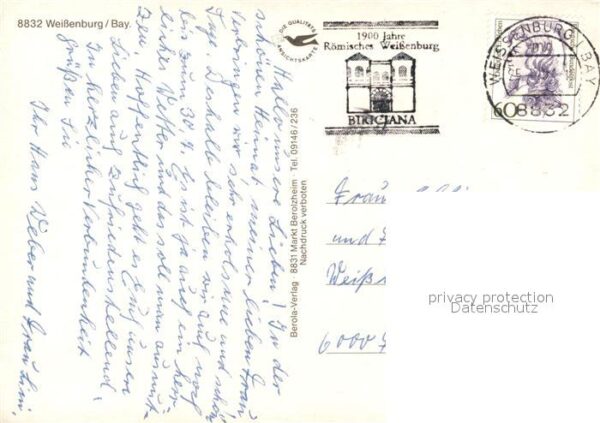 8832 Weißenburg / Bay.
DIE QUALITÄTS
ANSICHTSKARTE
Hallo unsere Lieben! In der
schönen Heimat meiner lieben Frau
verbringen wir sehr erholsame und schöne
Tage. Deshalb bleiben wir auch noch
bis zum 30.9. Es ist ja auch ein herr-
liches Wetter und das soll man ausnut-
zen. Hoffentlich geht es Euch unseren
Lieben auch zufriedenstellend.
In herzlicher Verbundenheit
grüßen Sie
Ihr Hans Weber und Frau
Berola-Verlag 8831 Markt Berolzheim Tel. 09146/236
Nachdruck verboten
1900 Jahre
Römisches Weißenburg
BIRICIANA
WEISSENBURG, BAY
8832
60
Frau
und
Weiß
6000
privacy protection
Datenschutz